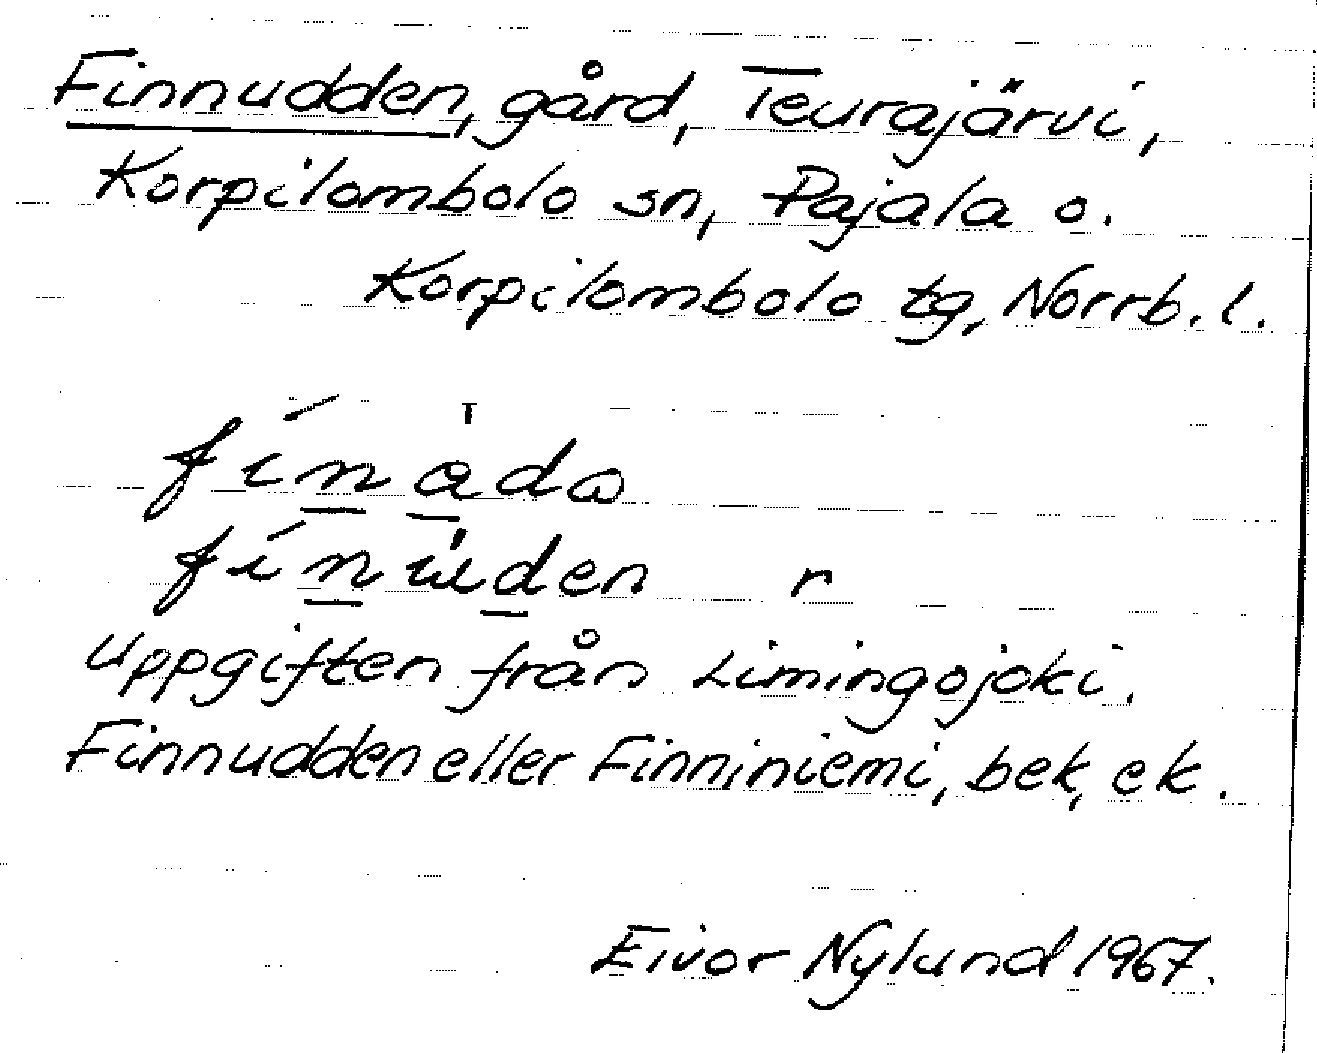 Finnudden, gård, Teurajärvi,
Korpilombolo sn, Pajala o.
Korpilombolo tg, Norrb. l.
r
Uppgiften från Limingojoki.
Finnudden eller Finniniemi, bek, ek.
Eivor Nylund 1967.